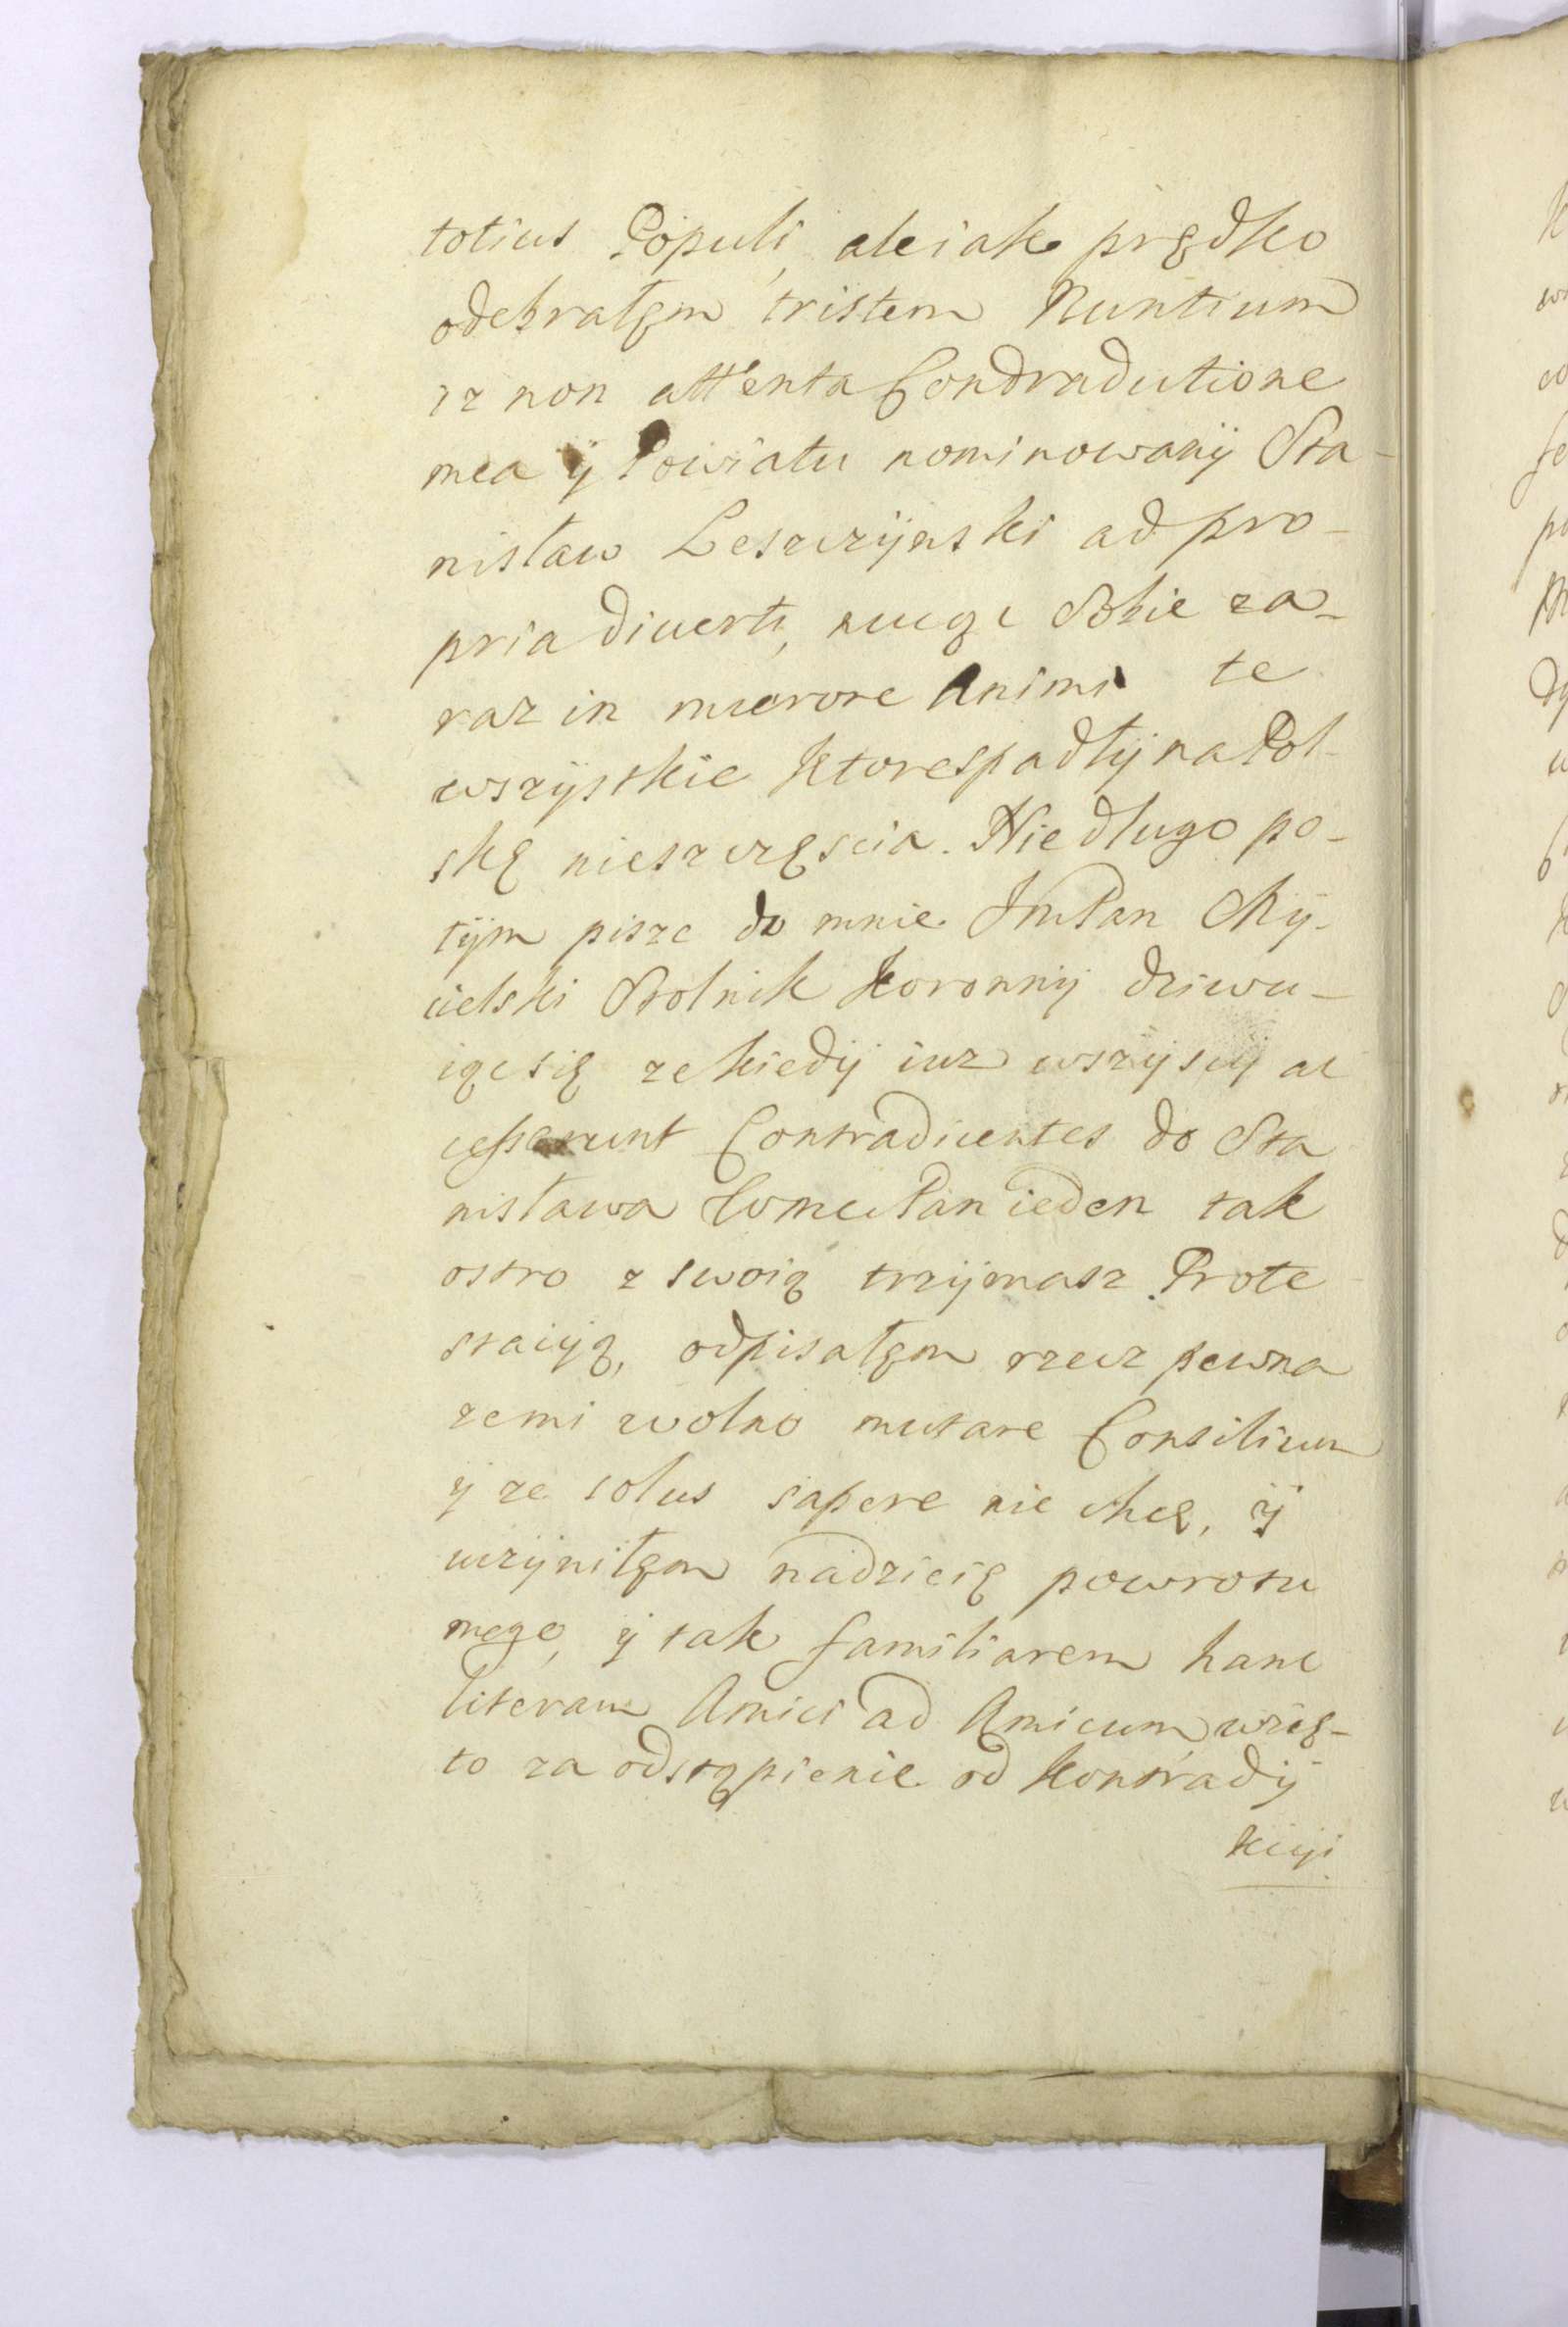 totius Populi, ale iak prędko
odebrałęm tristem Nuntium
iz non attenta Condradictione
mea ÿ Powiatu nominowanÿ Sta-
nisław Leszczÿnski ad pro-
pria diverti, nucąc Sobie za-
raz in merore Animi te
wszÿstkie ktore spadłÿ na Pol-
skę nieszczęscia. Nie długo po-
tÿm pisze do mnie JmPan Mÿ-
cielski Stolnik Koronnÿ dziwu-
iąc się ze kiedÿ iuz wszÿscÿ ac
cesserunt Contradicentes do Sta
nisława Pan ieden tak
ostro z swoią trzÿmasz Prote
stacÿą, odpisałęm rzecz pewna
ze mi wolno mutare Consilium
ÿ ze solus sapere nie chcę, ÿ
uczÿniłęm nadzieię powrotu
mego, ÿ tak familiarem hanc
literam Amici ad Amicum wzię-
to za odstąpienie od Kontradÿ
kcÿi